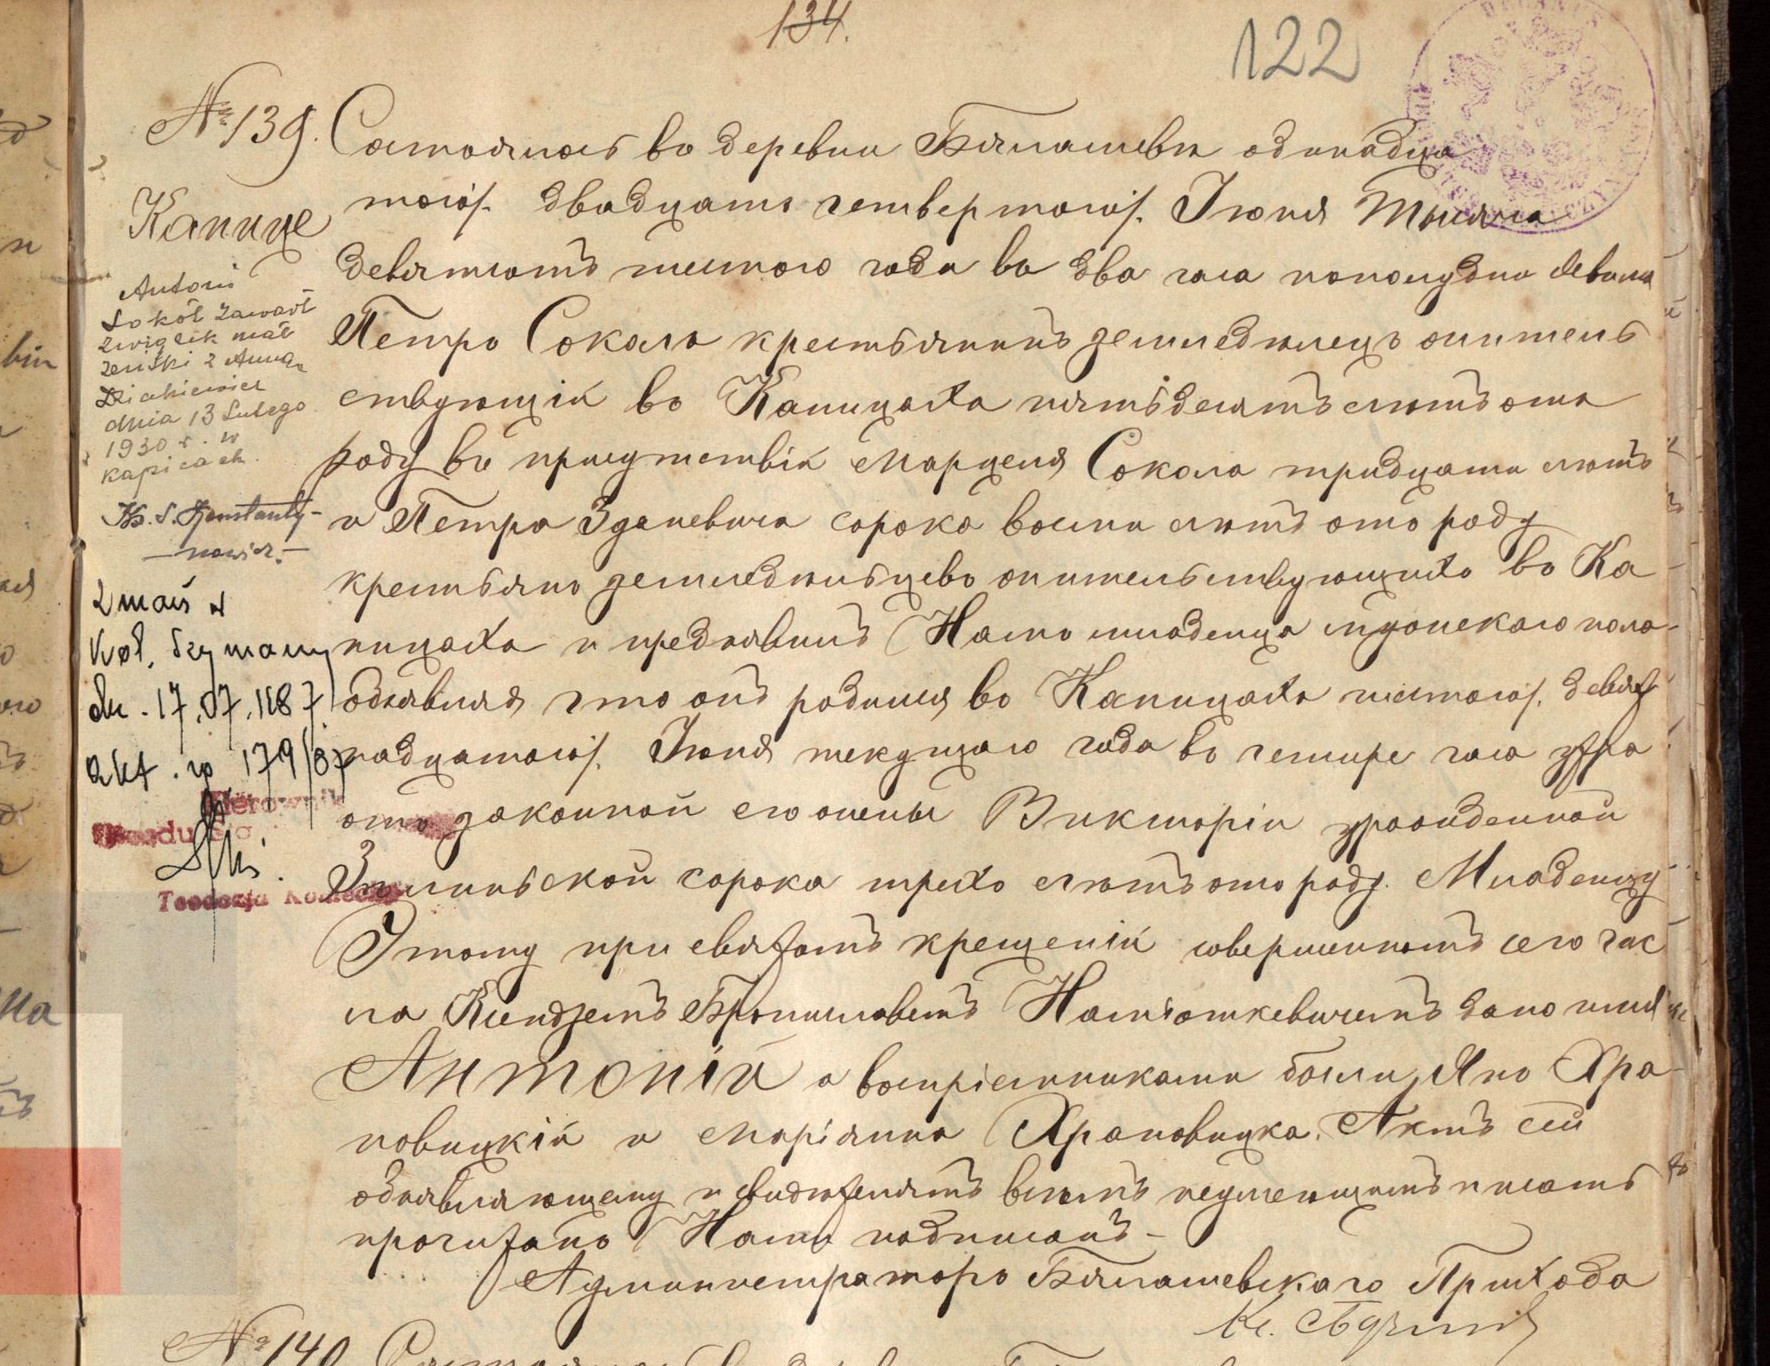 134.
122
№ 139.
Состоялось въ деревни Бялашевѣ одинадца
того/ двадцать четвертого/ Іюня Тысяча
девятьсотъ шестого года въ два часа пополудни Явился
Петръ Соколъ крестьянинъ земледѣлецъ житель
ствующій въ Капицахъ пятьдесятъ лѣтъ отъ
роду въ присутствіи Марцеля Сокола тридцати лѣтъ
и Петра Зданевича сорока восьми лѣтъ отъ роду
крестьянъ земледѣльцевъ жительствующихъ въ Ка
пицахъ и предъявилъ Намъ младенца мужескаго пола
объявляя что онъ родился въ Капицахъ шестого/ девят
надцатого/ Іюня текущаго года въ четыре часа утра
отъ законной его жены Викторіи урожденной
сорока трехъ лѣтъ отъ роду. Младенцу
Этому при святомъ крещеніи совершенномъ сего чис
ла Ксендземъ Брониславомъ дано имя
Антоній а воспріемниками были Янъ Хра
повицкій и Маріянна Храповицка. Актъ сей
объявляющему и свидѣтелямъ всѣмъ неумеющимъ писать
прочитано Нами подписанъ –
Администраторъ Бялашевскаго Прихода
Кс.
Капице
Antoni
Sokół zawarł
związek mał
żeński z Anną
Dziakiewicz
dnia 13 Lutego
1930 r. w
Kapicach.
Ks. S. Konstanty-
nowicz.-
zmarł w
Kol. Szymany
dn. 17.07.1987
akt. zg 179/87
Kierownik
Teodozja
№ 140